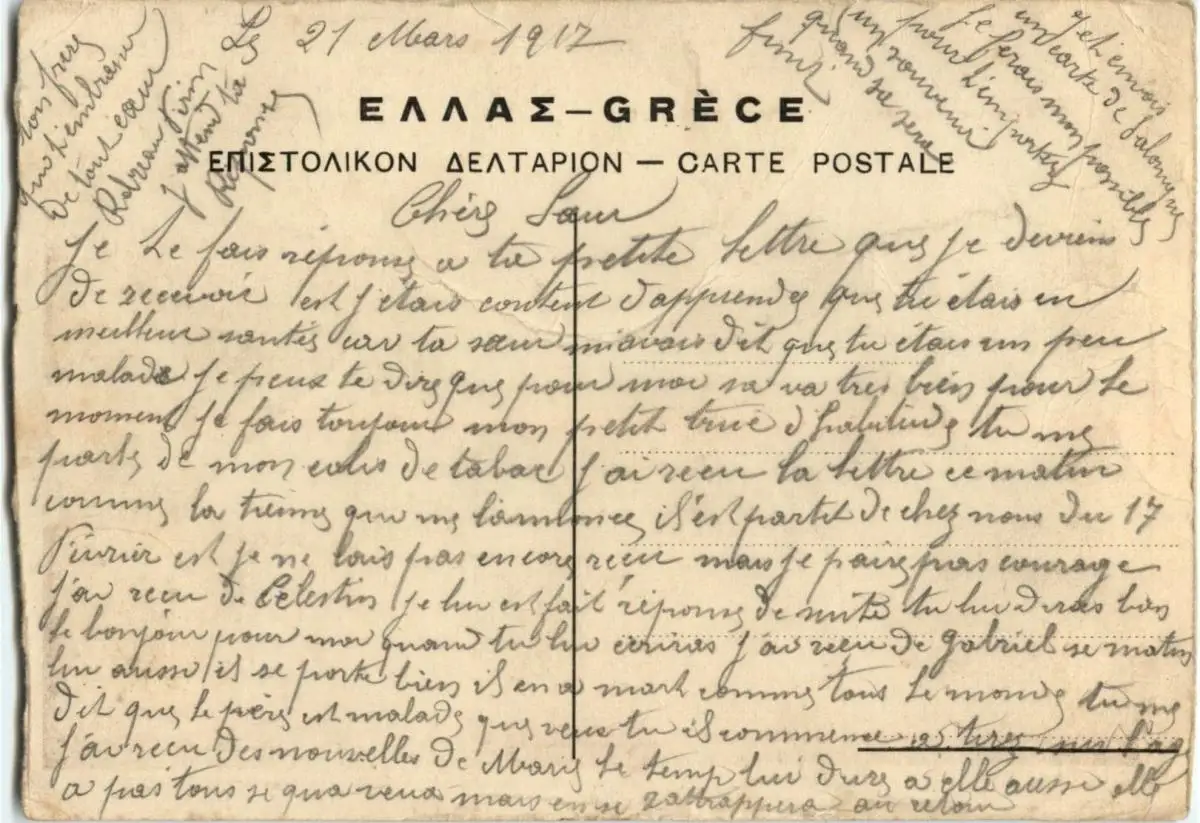 Le 21 Mars 1917
ΕΛΛΑΣ – GRÈCE
ΕΠΙΣΤΟΛΙΚΟΝ ΔΕΛΤΑΡΙΟΝ — CARTE POSTALE
Chére Sœur
Je te fais réponse a ta petite lettre que je deviens
de recevoir est j'étais content d'apprendre que tu étais en
meilleur santés car ta sœur m'avais dit que tu étais un peu
malade je peux te dire que pour moi sa va tres bien pour le
moment je fais toujour mon petit truc d'habitude tu me
parle de mon colis de tabac j'ai recu la lettre ce matin
comme la tienne que me l'annonce il s'est partit de chez nous du 17
Fevrier est je ne lais pas encore recu mais je pairs pas courage
j'ai recu de Célestin je lui est fait réponse de suite tu lui diras bien
le bonjour pour moi quand tu lui écriras j'ai recu de Gabriel se matin
lui aussi il se porte bien il en a mart comme tous le monde tu me
dit que le père est malade que veus tu il commence a tirer sur l'age
j'ai recu des nouvelles de Marie le temp lui dure a elle ausse elle
a pas tous se qua veux mais en se rattrappera au retour
je t'envois
un carte de Salonique
Je ferais mon possible
pour l'emporter
un souvenir
quand sa sera
fini
ton frere
qui t'embrasse
De tout cœur
Firmin
J'attend ta
Reponse